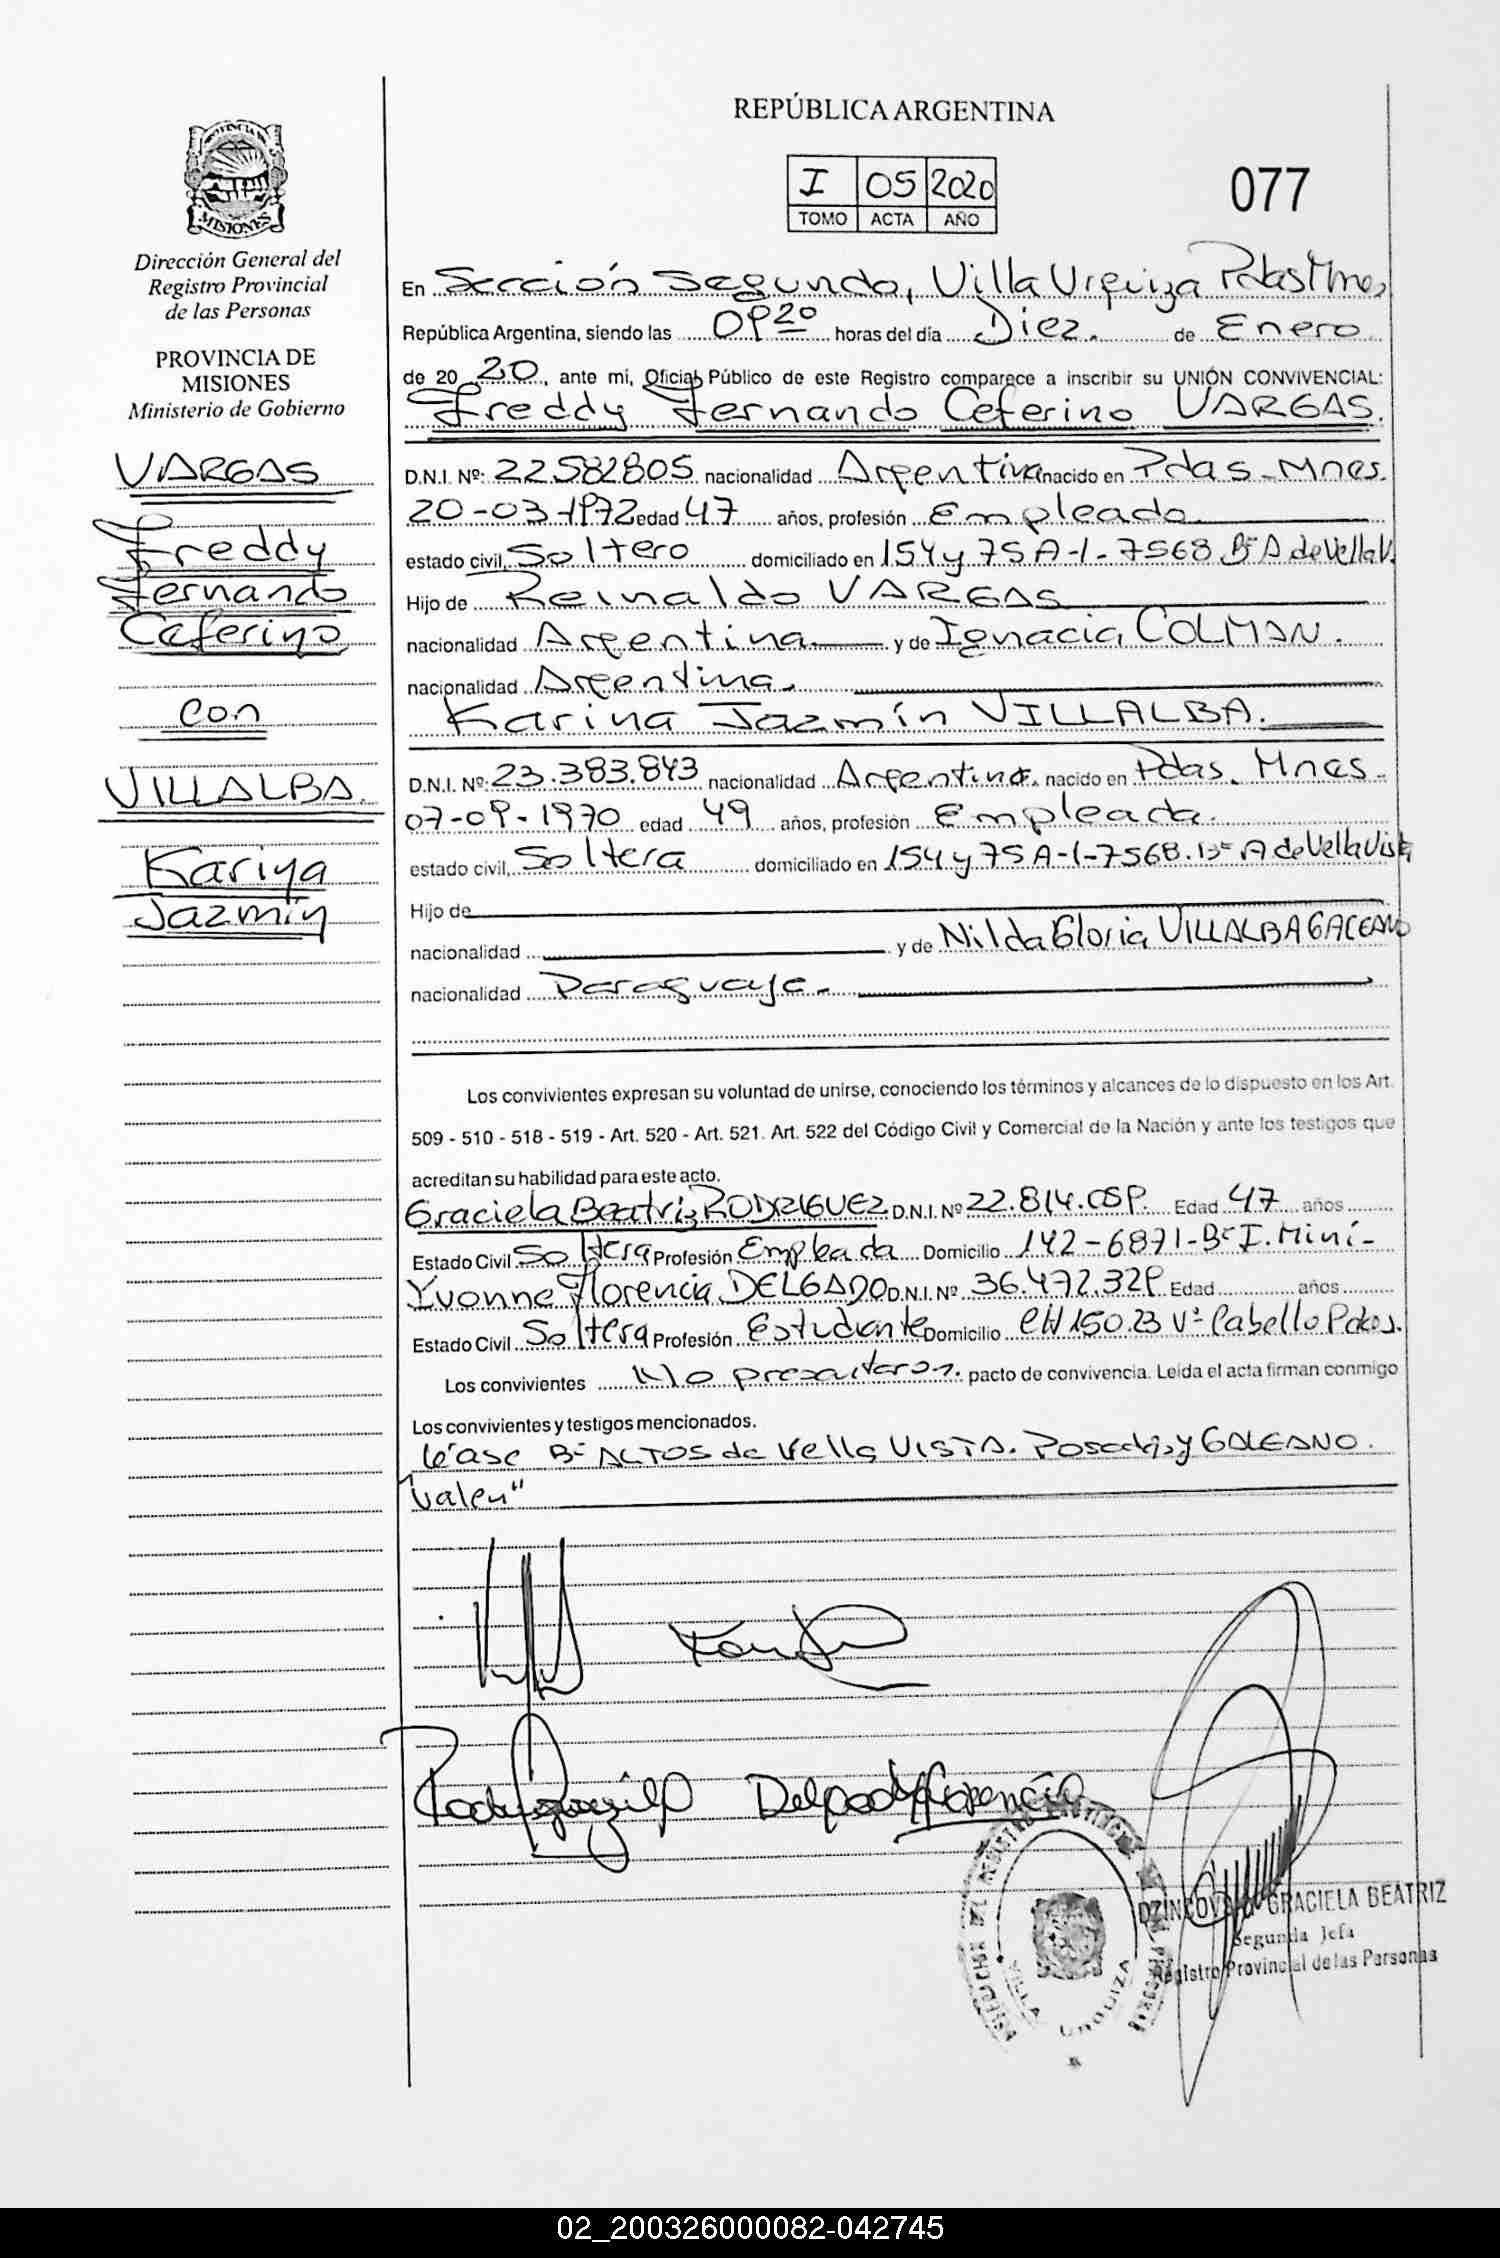 REPÚBLICA ARGENTINA
I 05 2020
TOMO ACTA AÑO
077
PROVINCIA DE
MISIONES
Dirección General del
Registro Provincial
de las Personas
PROVINCIA DE
MISIONES
Ministerio de Gobierno
VARGAS
Freddy
Fernando
Ceferino
con
VILLALBA.
Karina
Jazmín
En Sección Segunda, Villa Urquiza Pdas Mnes,
República Argentina, siendo las 09 20 horas del día Diez. de Enero
de 20 20, ante mi, Oficial Público de este Registro comparece a inscribir su UNIÓN CONVIVENCIAL:
Freddy Fernando Ceferino VARGAS.
D.N.I. Nº: 22.582805 nacionalidad Argentina nacido en Pdas - Mnes.
20-03-1972 edad 47 años, profesión Empleado
estado civil, Soltero domiciliado en 154 y 75 A-1-7568 Bº A de Vella V.
Hijo de Reinaldo VARGAS
nacionalidad Argentina y de Ignacia COLMAN.
nacionalidad Argentina.
Karina Jazmín VILLALBA.
D.N.I. Nº: 23.383.843 nacionalidad Argentina. nacido en Pdas. Mnes.
07-09-1970 edad 49 años, profesión Empleada.
estado civil, Soltera domiciliado en 154 y 75 A-1-7568. Bº A de Vella Vista
Hijo de
nacionalidad y de Nilda Gloria VILLALBA GACEANO
nacionalidad Paraguaya.
Los convivientes expresan su voluntad de unirse, conociendo los términos y alcances de lo dispuesto en los Art.
509 - 510 - 518 - 519 - Art. 520 - Art. 521. Art. 522 del Código Civil y Comercial de la Nación y ante los testigos que
acreditan su habilidad para este acto.
Graciela Beatriz RODRIGUEZ D.N.I. Nº 22.814.059. Edad 47 años
Estado Civil Soltera Profesión Empleada Domicilio 142-6871-Bº I. Miní-
Yvonne Florencia DELGADO D.N.I. Nº 36.472.329 Edad años
Estado Civil Soltera Profesión Estudiante Domicilio 150.23 Vº Cabello Pdas.
Los convivientes No presentaron. pacto de convivencia. Leída el acta firman conmigo
Los convivientes y testigos mencionados.
léase Bº ALTOS de Vella VISTA. Posadas, y GALEANO.
"valen"
Delgado Florencia
VILLA URQUIZA
DZINCOVSKI GRACIELA BEATRIZ
Segunda Jefa
Registro Provincial de las Personas
02_200326000082-042745